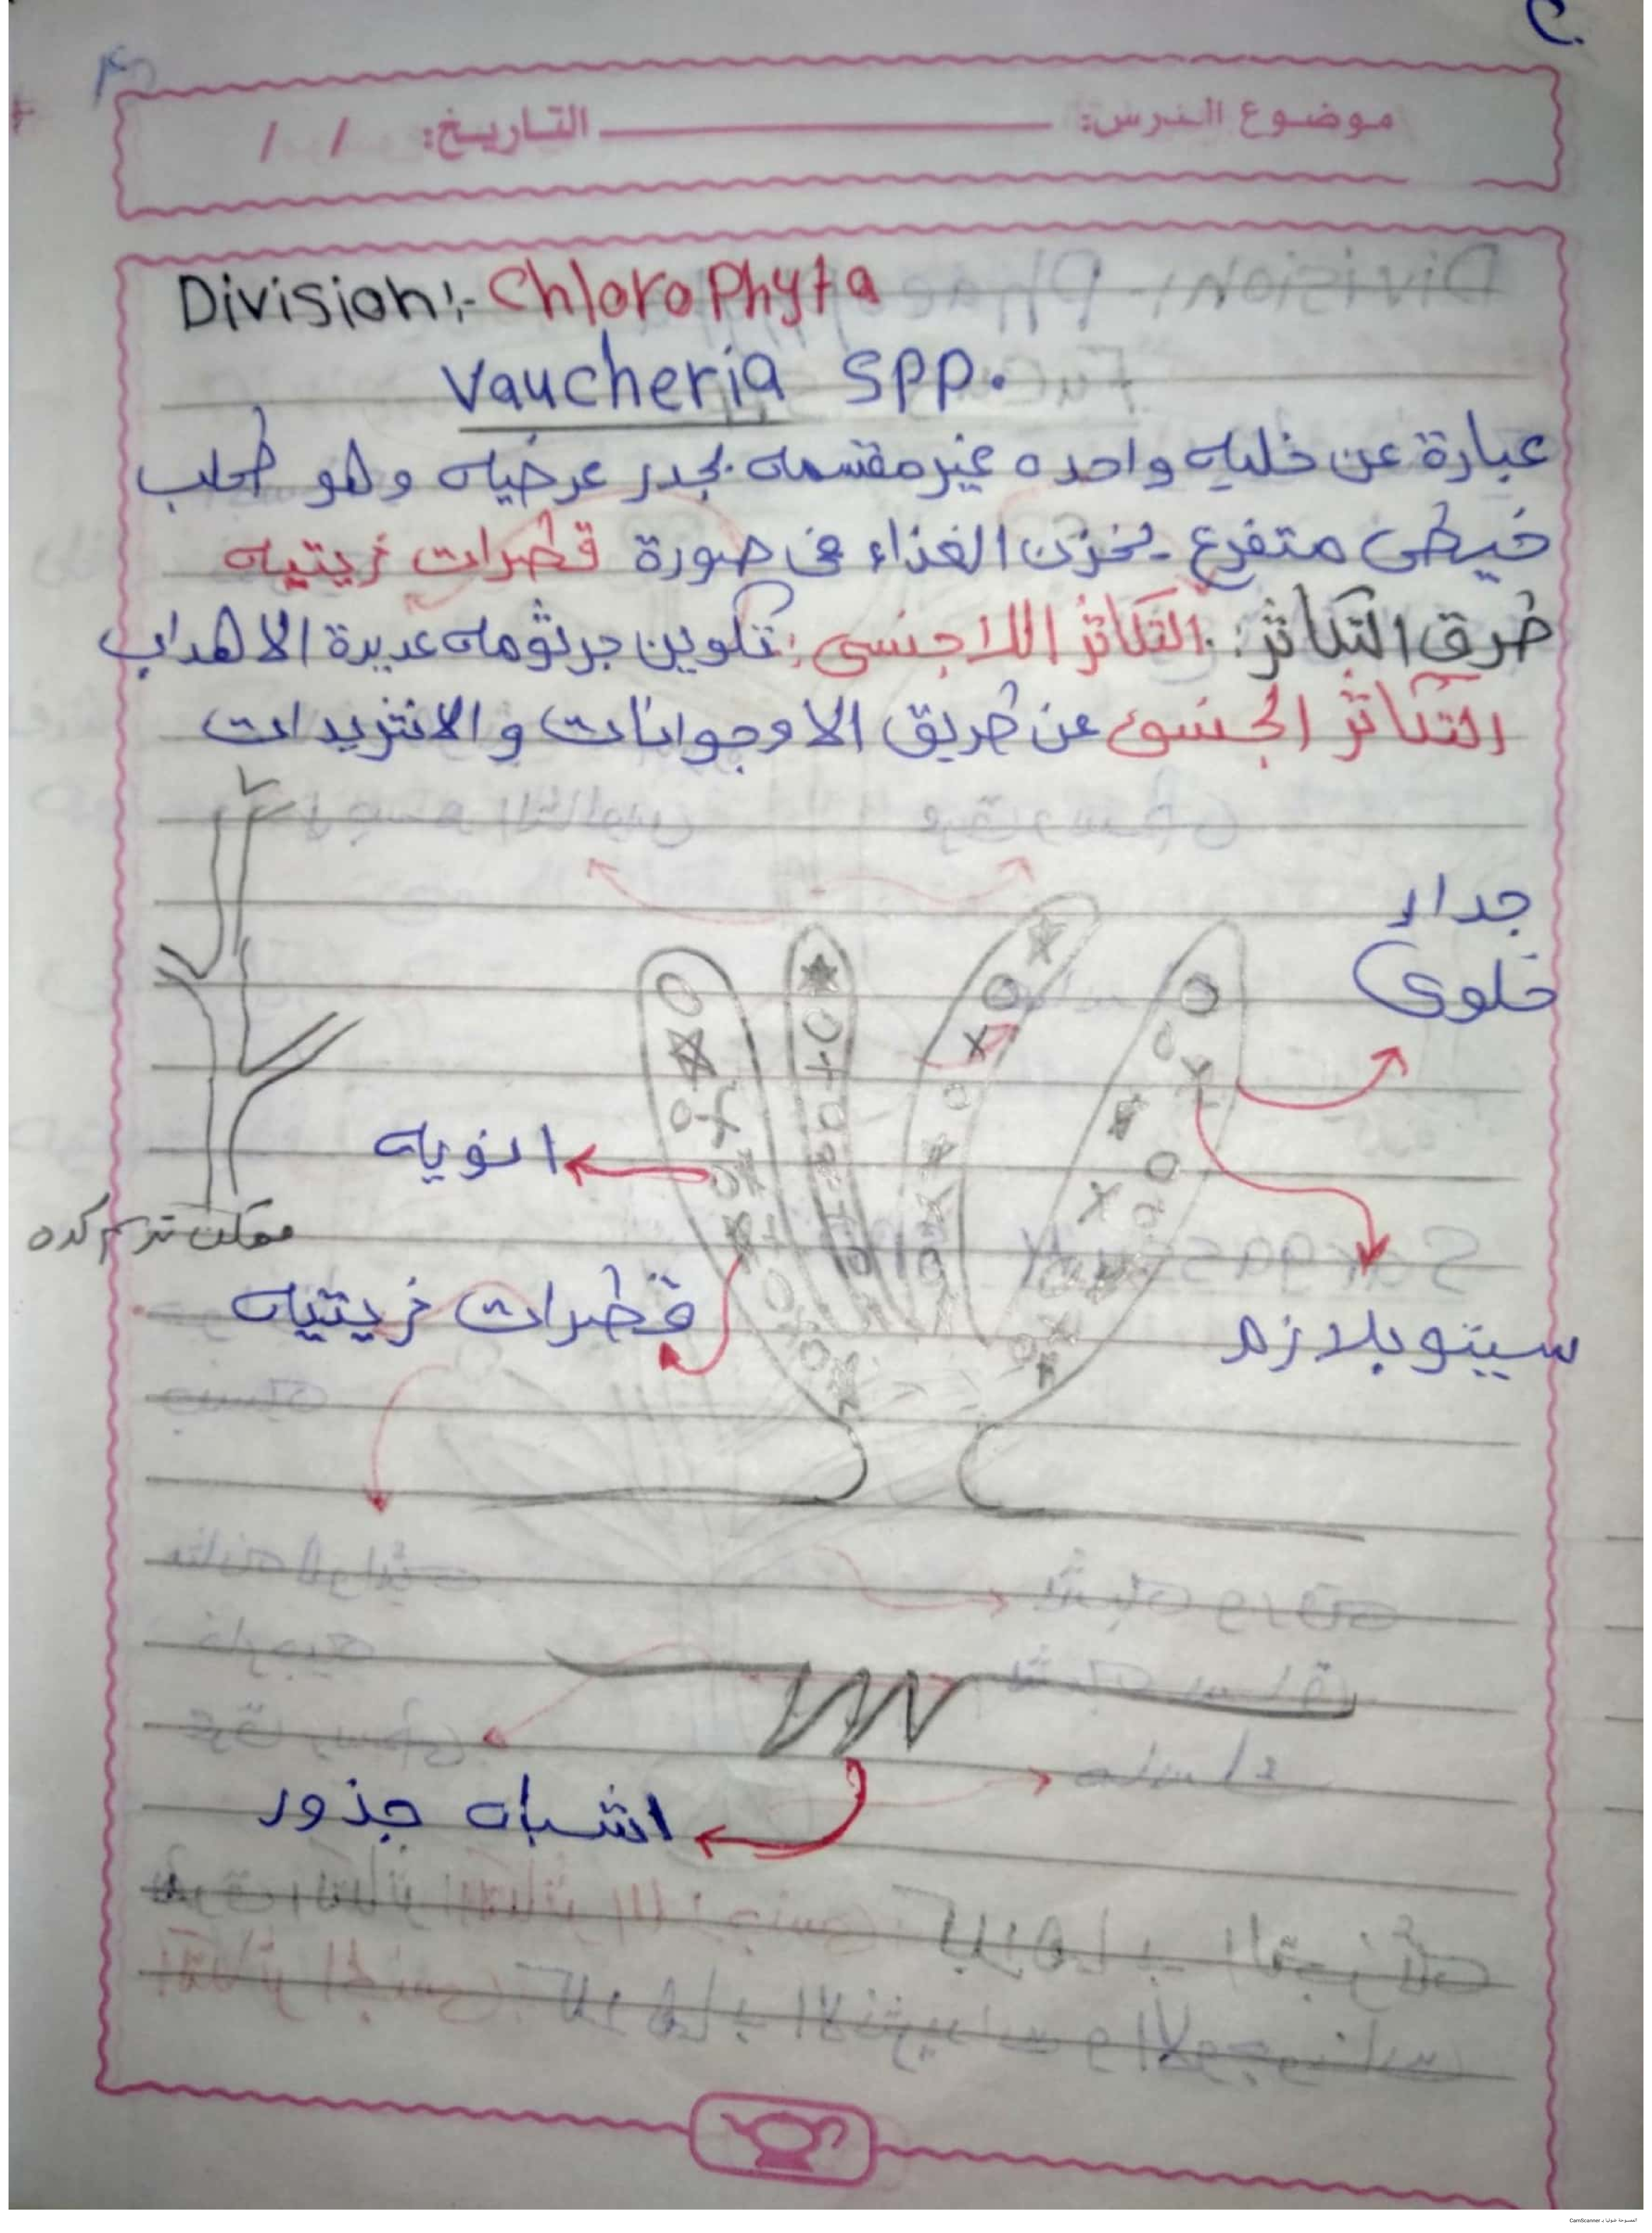 موضوع الدرس: التاريخ: / /
Division:- ChloroPhyta
Vaucheria spp.
عبارة عن خليه واحده غير مقسمه بجدر عرضيه وهو طحلب
خيطى متفرع يخزن الغذاء فى صورة قطرات زيتيه
طرق التكاثر: التكاثر اللاجنسى: تكوين جرثومه عديدة الاهداب
التكاثر الجنسى عن طريق الاوجوانات والانتزيدات
جدار
خلوى
انويه
ممكن ترسم كده
قطرات زيتيه
سيتوبلازم
اشباه جذور